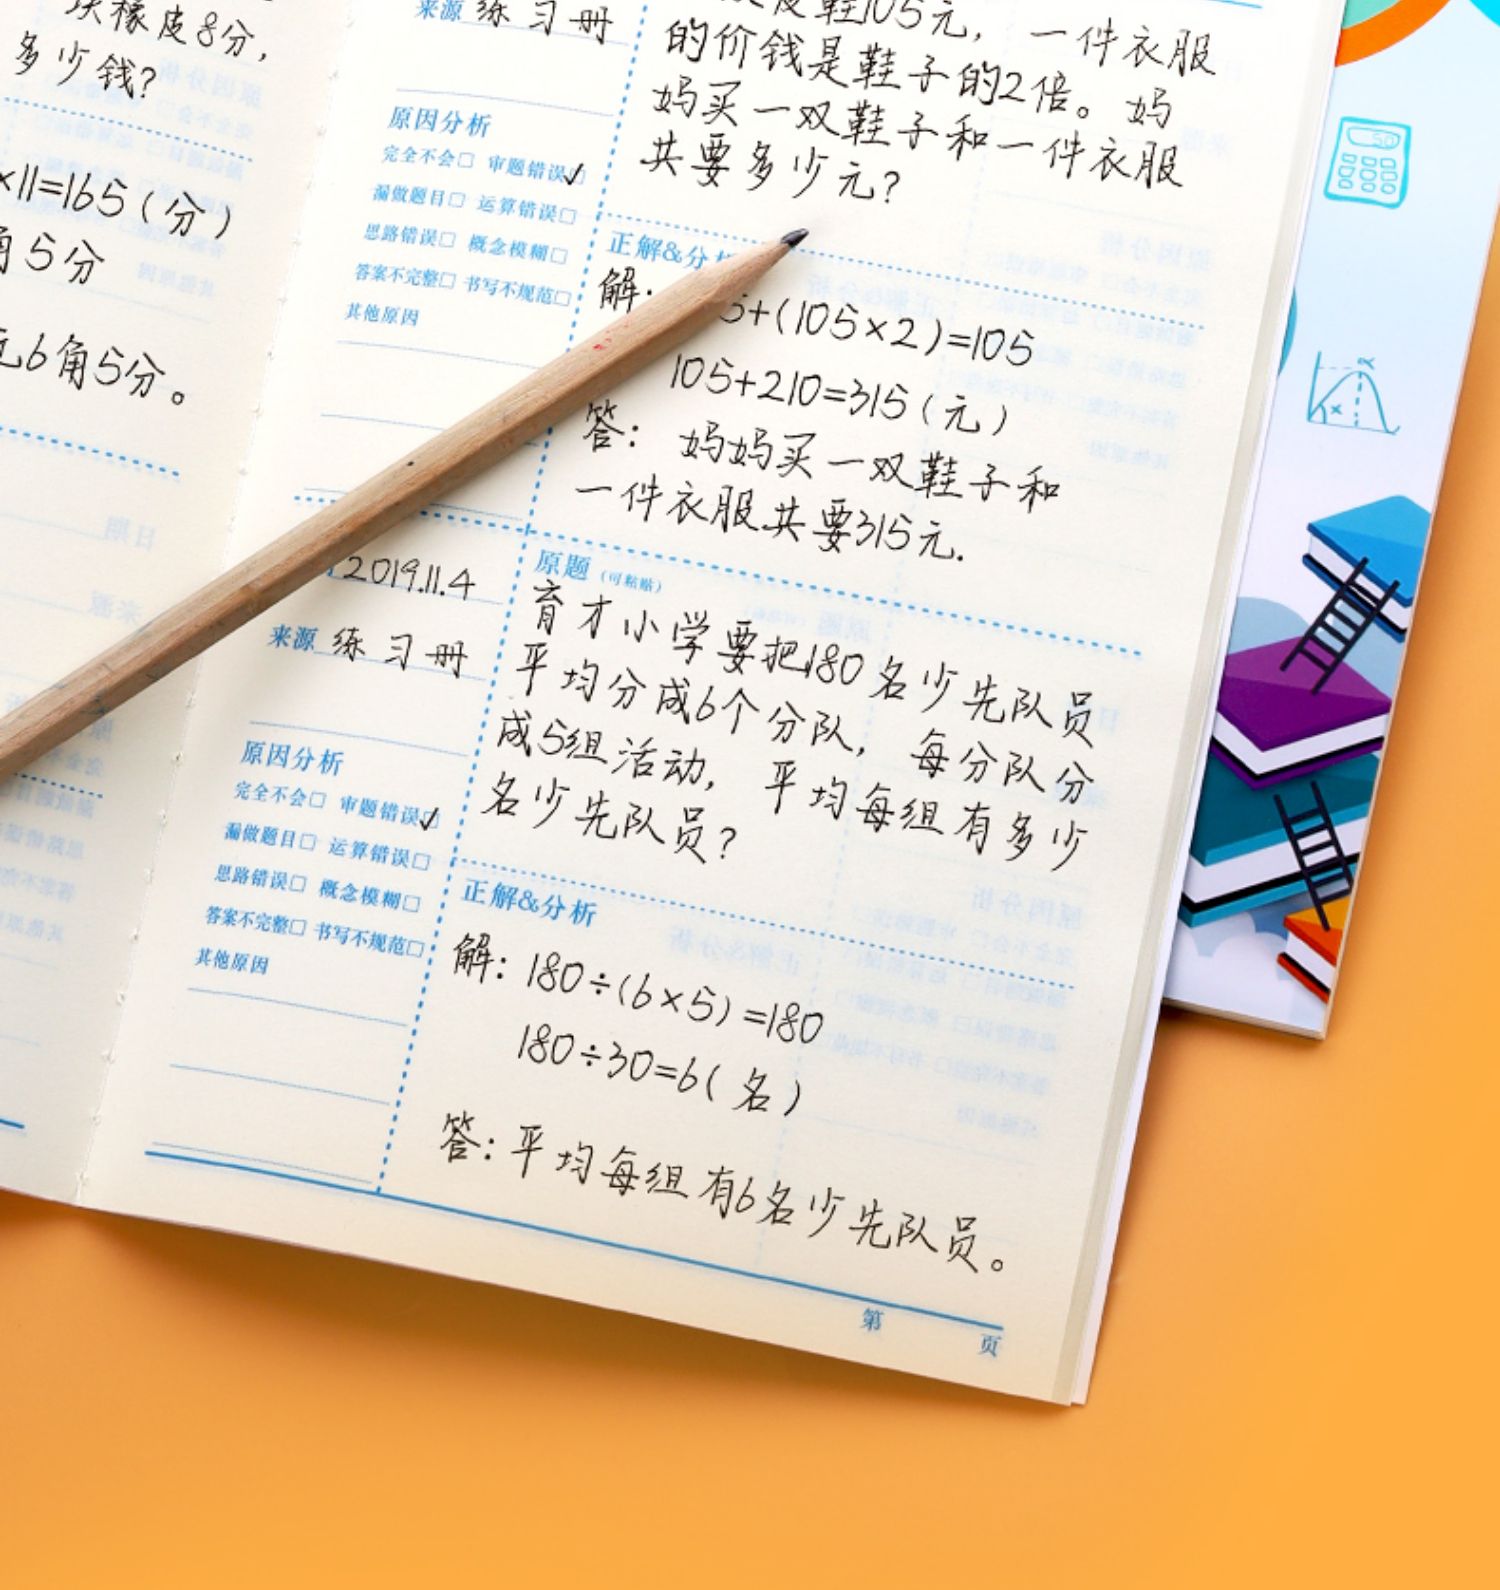 块橡皮8分，
多少钱？
×11=165（分）
角5分
元6角5分。
来源 练习册
皮鞋105元，一件衣服
的价钱是鞋子的2倍。妈
妈买一双鞋子和一件衣服
共要多少元？
原因分析
完全不会□ 审题错误☑
漏做题目□ 运算错误□
思路错误□ 概念模糊□
答案不完整□ 书写不规范□
其他原因
正解&分析
解：5+(105×2)=105
105+210=315（元）
答：妈妈买一双鞋子和
一件衣服共要315元.
2019.11.4
来源 练习册
原因分析
完全不会□ 审题错误☑
漏做题目□ 运算错误□
思路错误□ 概念模糊□
答案不完整□ 书写不规范□
其他原因
原题（可粘贴）
育才小学要把180名少先队员
平均分成6个分队，每分队分
成5组活动，平均每组有多少
名少先队员？
正解&分析
解：180÷(6×5)=180
180÷30=6（名）
答：平均每组有6名少先队员。
第 页